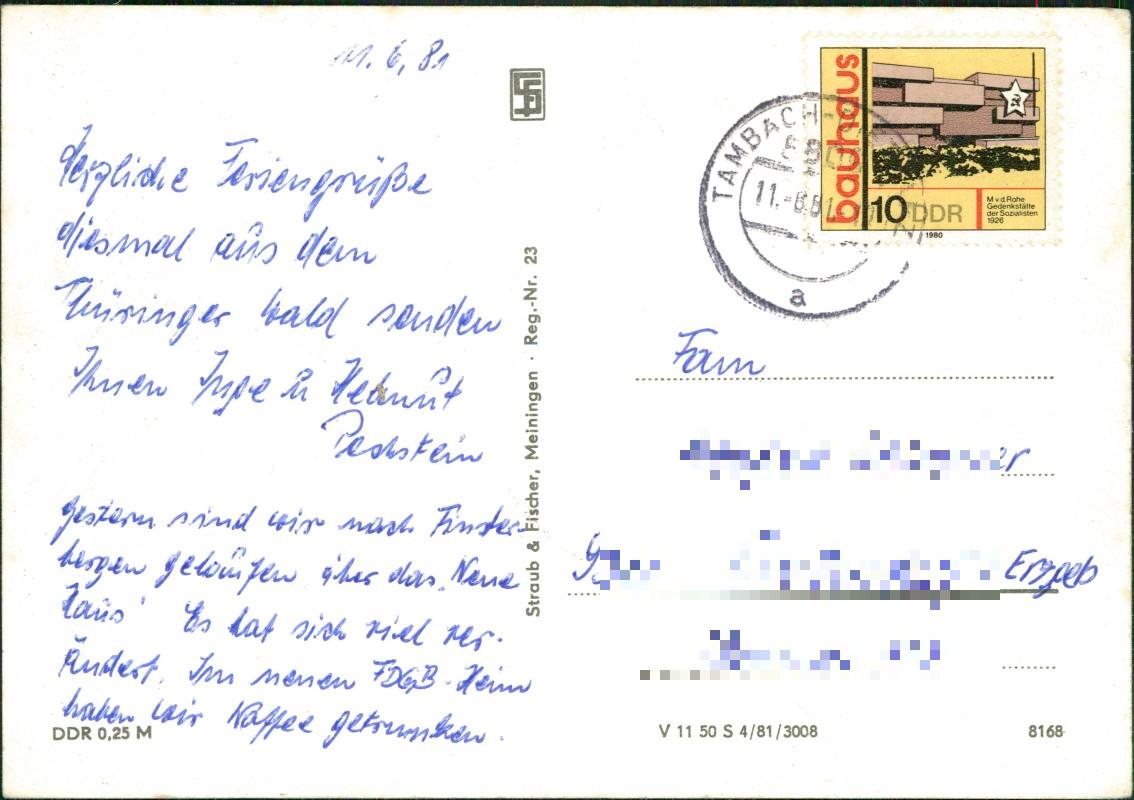 11. 6. 81
Herzliche Feriengrüße
diesmal aus dem
Thüringer Wald senden
Ihnen Inge u Helmut
Pechstein
Gestern sind wir nach Finster-
bergen gelaufen über das "Neue
Haus" Es hat sich viel ver-
ändert. Im neuen FDGB-Heim
haben wir Kaffee getrunken.
DDR 0,25 M
Straub & Fischer, Meiningen · Reg.-Nr. 23
TAMBACH-
11.-6.81
a
bauhaus
10 DDR
M v.d.Rohe
Gedenkstätte
der Sozialisten
1926
1980
Fam
Erzgeb
V 11 50 S 4/81/3008
8168